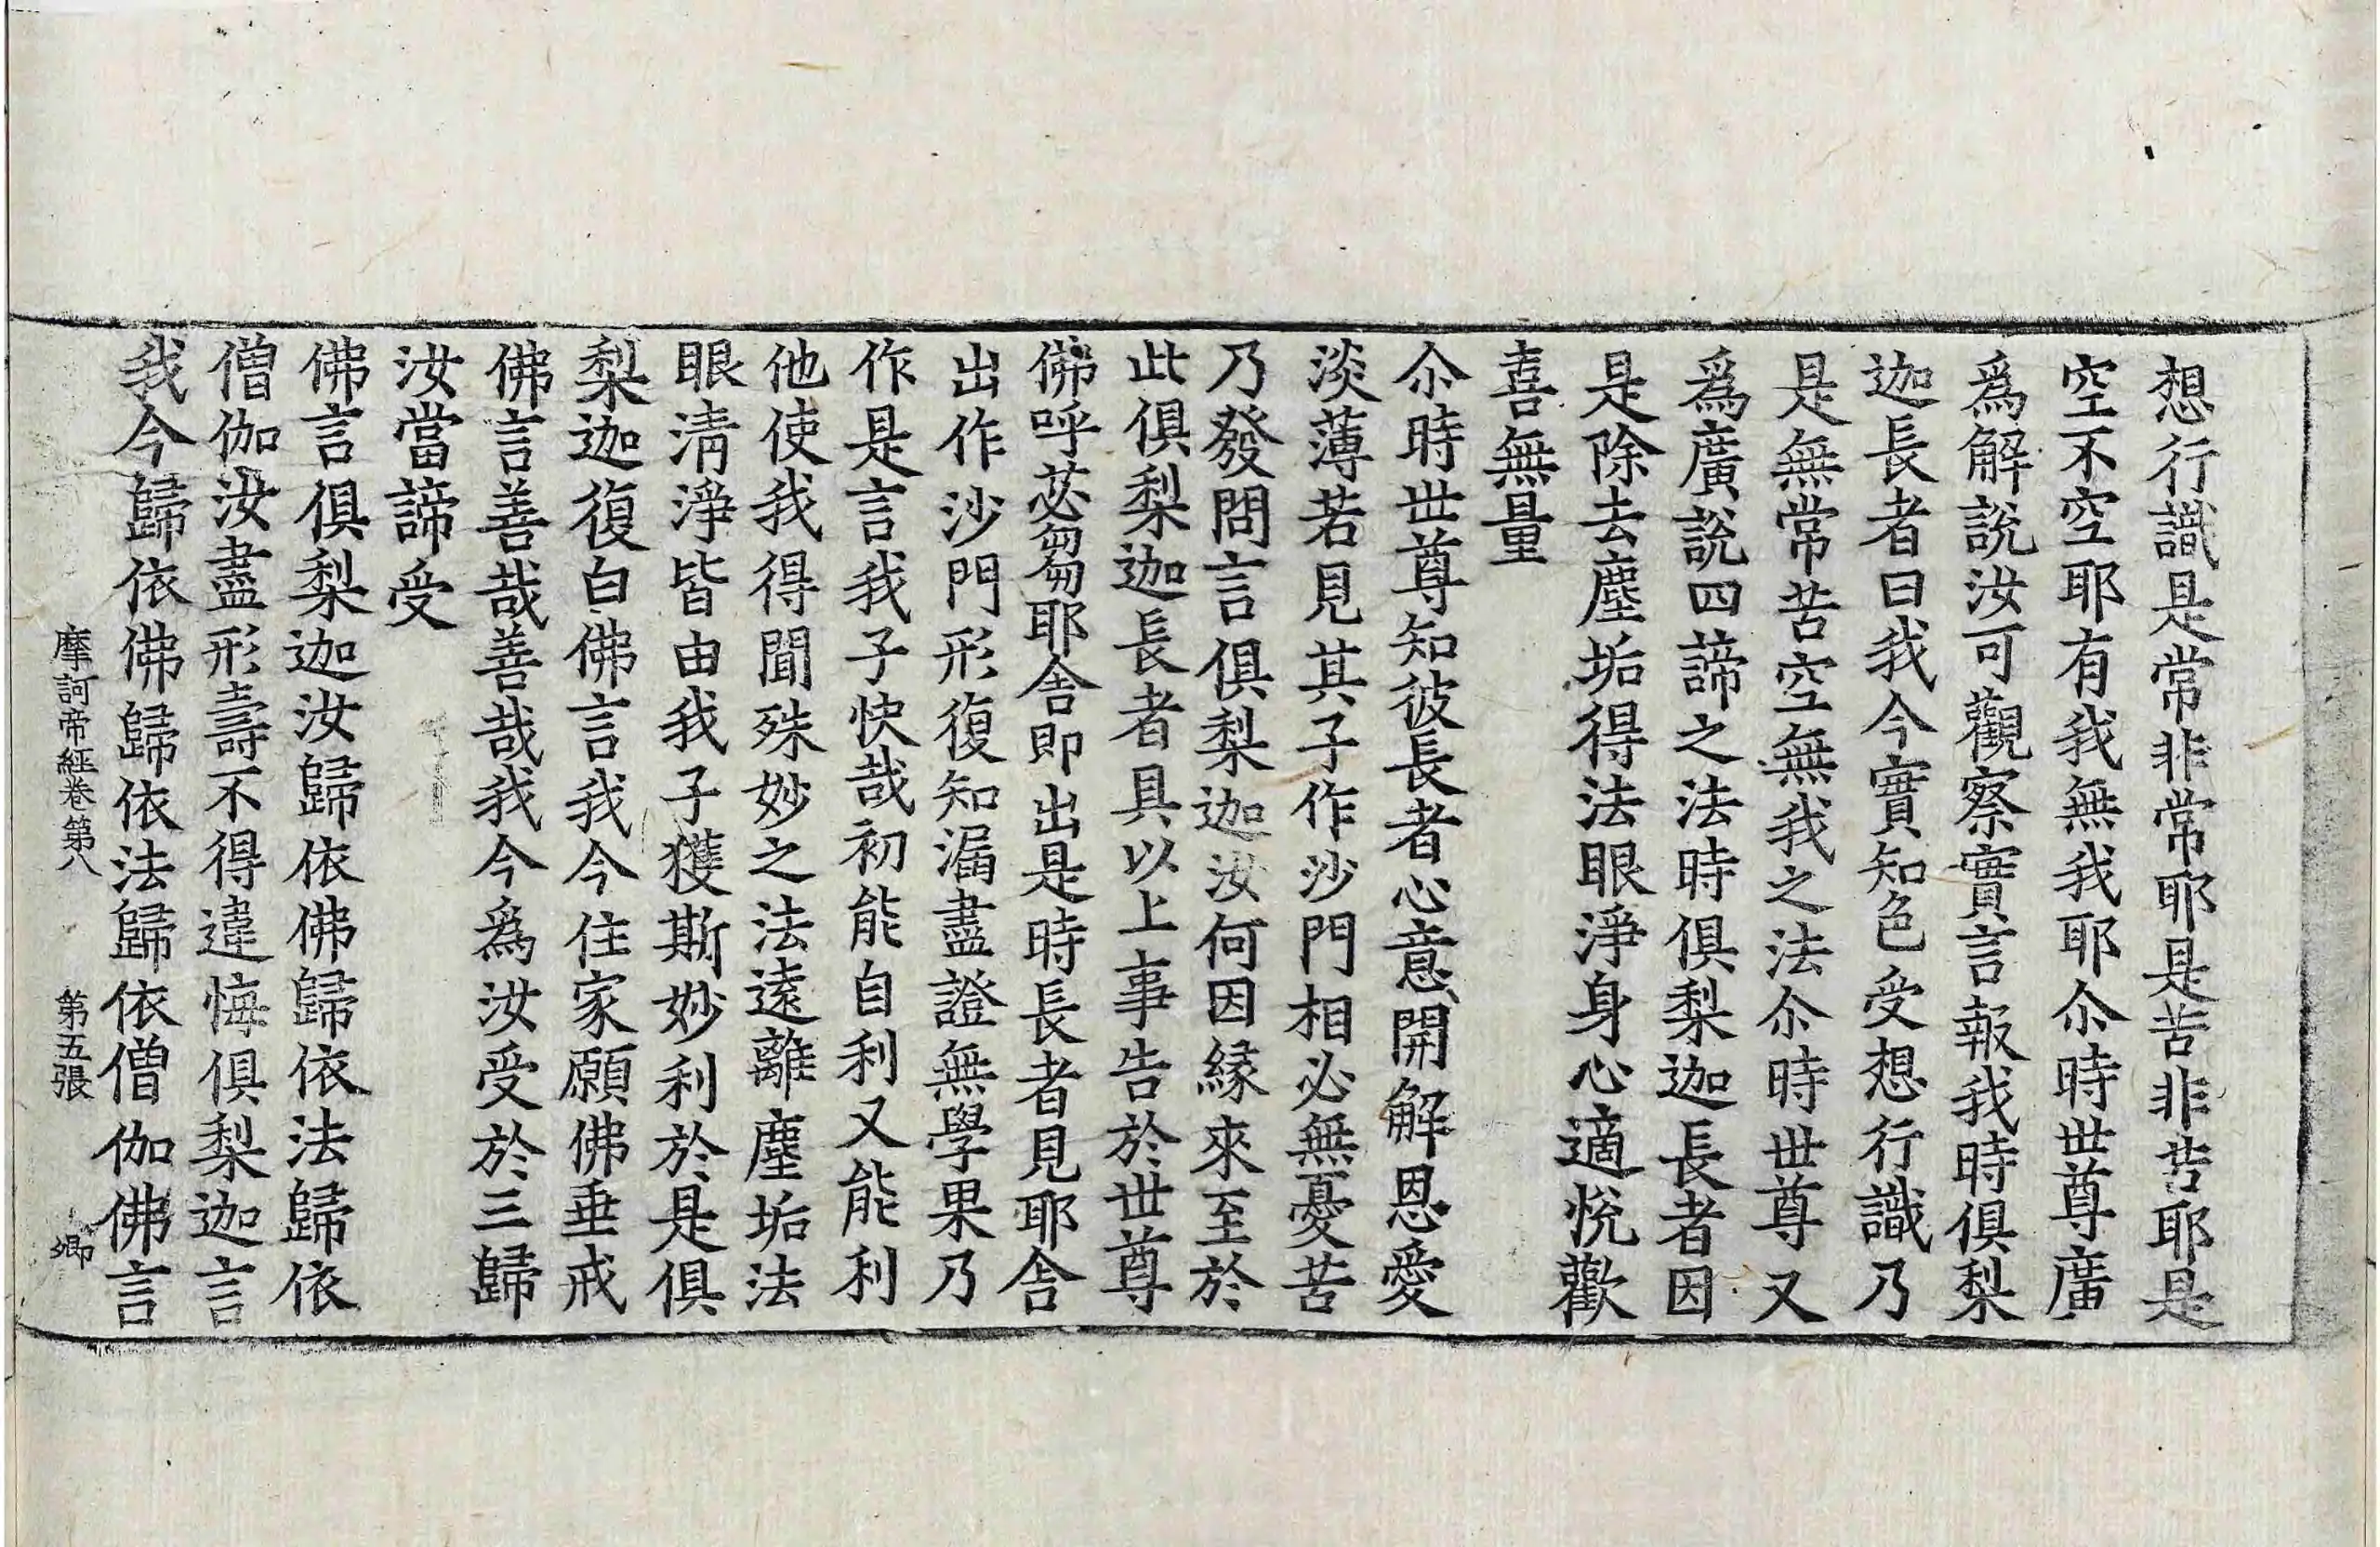 想行識是常非常耶是苦非苦耶是
空不空耶有我無我耶尒時世尊廣
爲解說汝可觀察實言報我時俱梨
迦長者曰我今實知色受想行識乃
是無常苦空無我之法尒時世尊又
爲廣說四諦之法時俱梨迦長者因
是除去塵垢得法眼淨身心適悅歡
喜無量
尒時世尊知彼長者心意開解恩愛
淡薄若見其子作沙門相必無憂苦
乃發問言俱梨迦汝何因緣來至於
此俱梨迦長者具以上事告於世尊
佛呼苾芻耶舍即出是時長者見耶舍
出作沙門形復知漏盡證無學果乃
作是言我子快哉初能自利又能利
他使我得聞殊妙之法遠離塵垢法
眼清淨皆由我子獲斯妙利於是俱
梨迦復白佛言我今住家願佛垂戒
佛言善哉善哉我今爲汝受於三歸
汝當諦受
佛言俱梨迦汝歸依佛歸依法歸依
僧伽汝盡形壽不得違悔俱梨迦言
我今歸依佛歸依法歸依僧伽佛言
摩訶帝經卷第八 第五張 卿